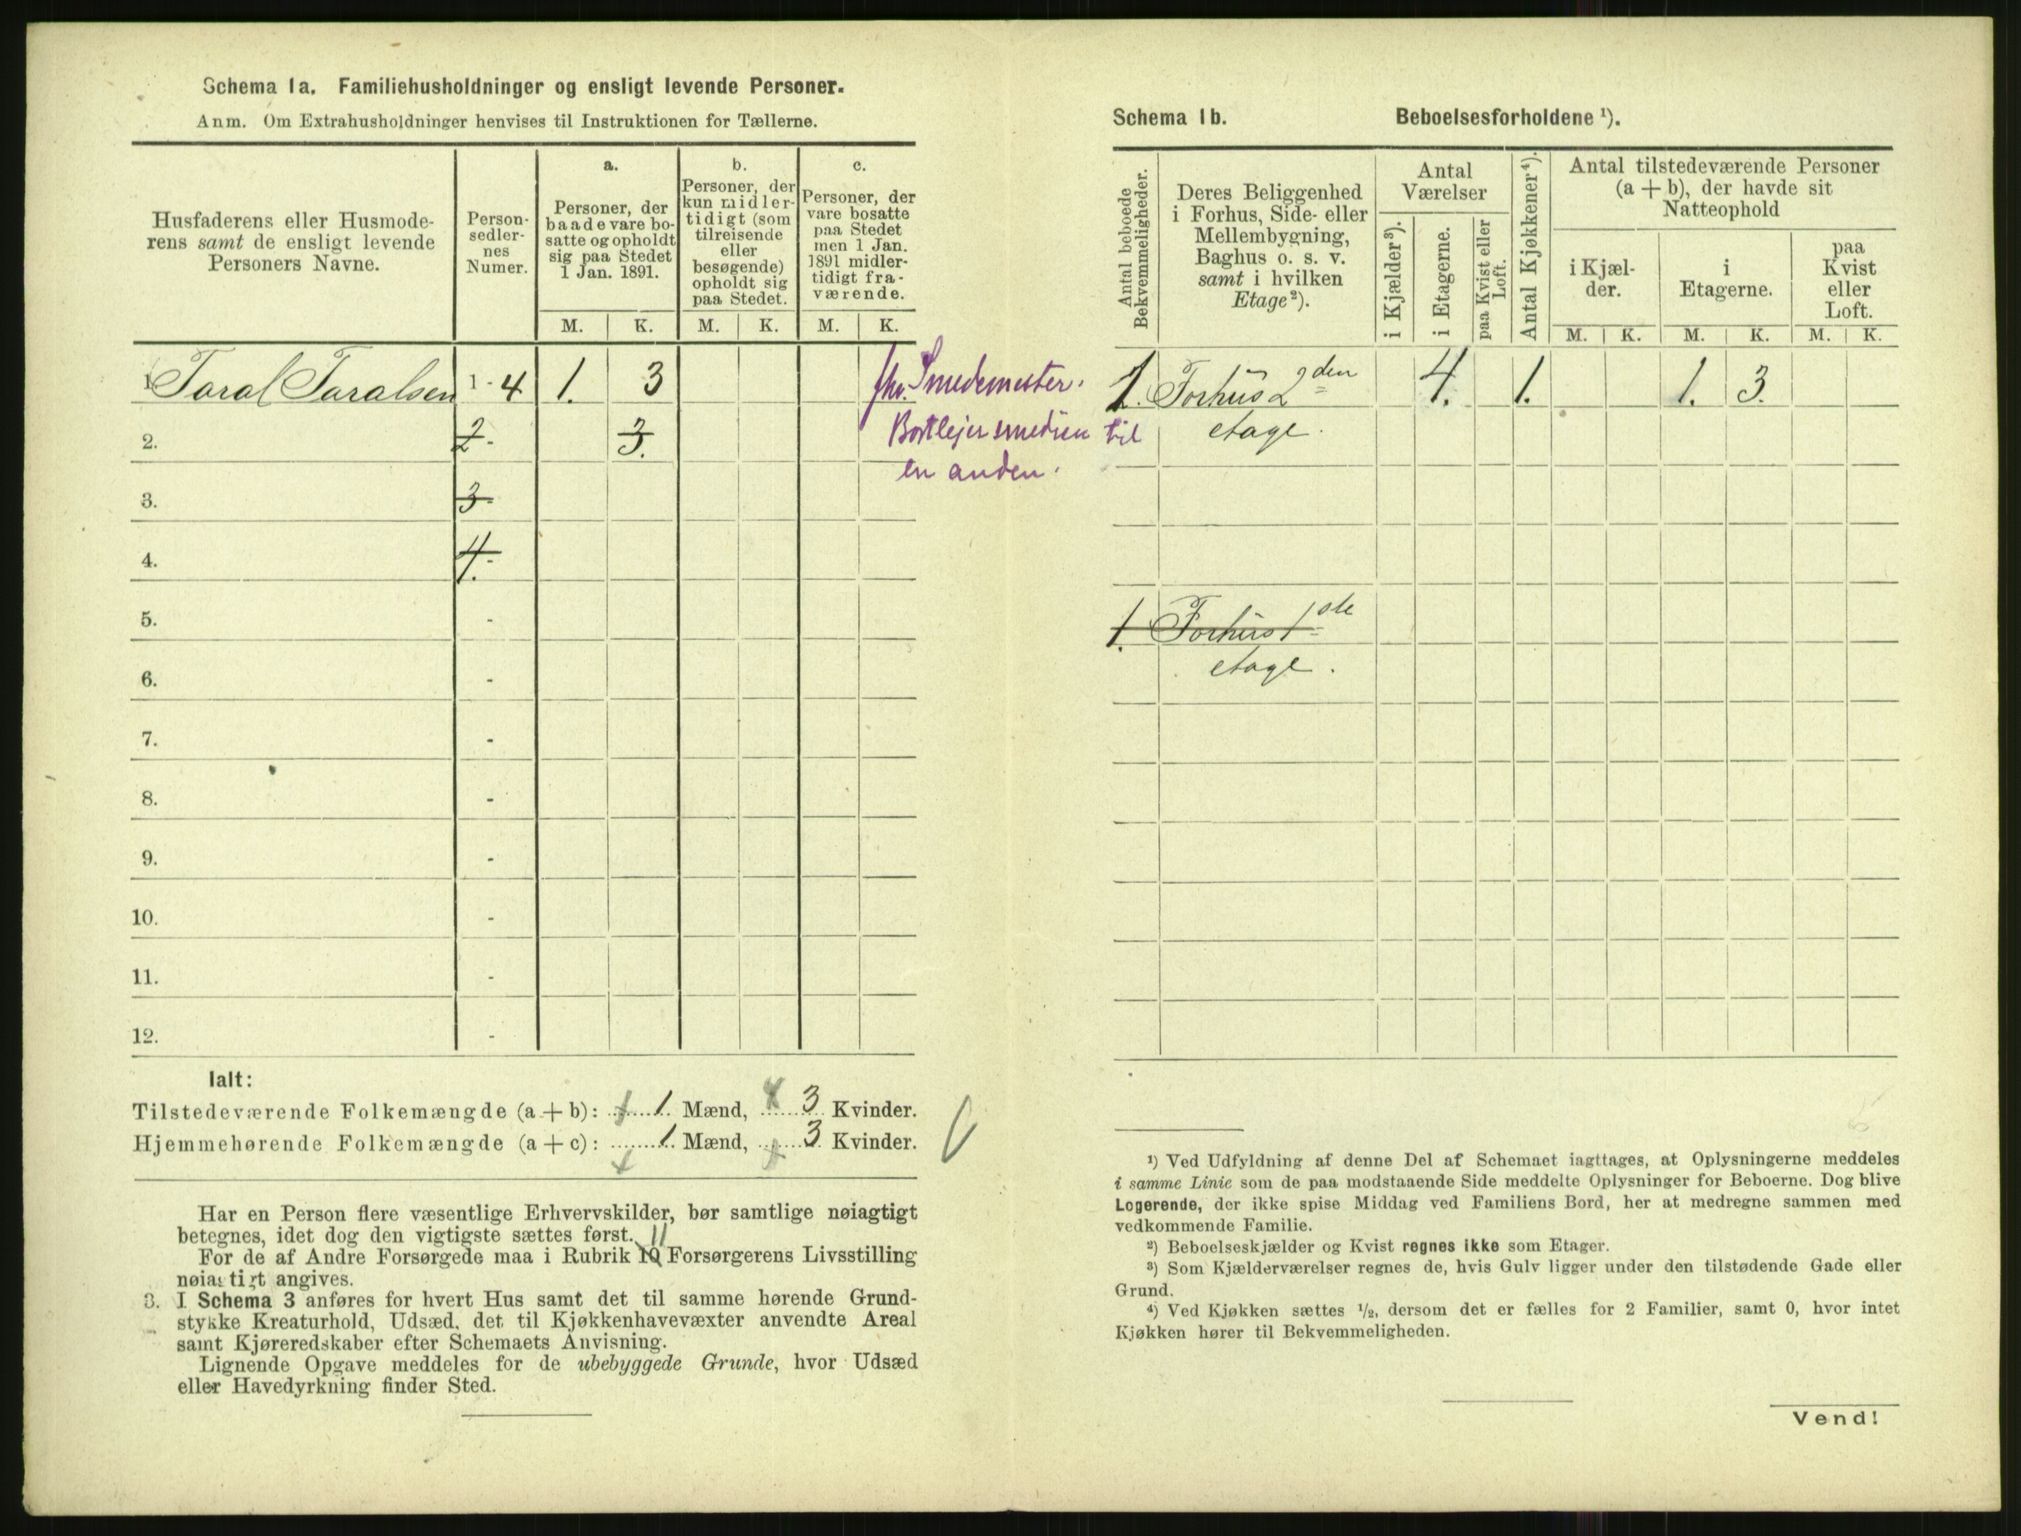 Schema 1a. Familiehusholdninger og ensligt levende Personer.
Anm. Om Extrahusholdninger henvises til Instruktionen for Tællerne.
Husfaderens eller Husmode-
rens samt de ensligt levende
Personers Navne.
Person-
sedler-
nes
Numer.
a.
Personer, der
baade vare bo-
satte og opholdt
sig paa Stedet
1 Jan. 1891.
b.
Personer, der
kun midler-
tidigt (som
tilreisende
eller
besøgende)
opholdt sig
paa Stedet.
c.
Personer, der
vare bosatte
paa Stedet
men 1 Jan.
1891 midler-
tidigt fra-
værende.
M. K. M. K. M. K.
1 Taral Taralsen 1 - 4 1. 3 fhv. Smedemester.
2. 2- 3. Bortlejer smedien til
en anden.
3. 3-
4. 4-
5. -
6. -
7. -
8. -
9. -
10. -
11. -
12. -
Ialt:
Tilstedeværende Folkemængde (a + b): 1 Mænd, 3 Kvinder.
Hjemmehørende Folkemængde (a + c): 1 Mænd, 3 Kvinder.
Har en Person flere væsentlige Erhvervskilder, bør samtlige nøiagtigt
betegnes, idet dog den vigtigste sættes først.
11
For de af Andre Forsørgede maa i Rubrik 10 Forsørgerens Livsstilling
nøiagtigt angives.
3. I Schema 3 anføres for hvert Hus samt det til samme hørende Grund-
stykke Kreaturhold, Udsæd, det til Kjøkkenhavevæxter anvendte Areal
samt Kjøreredskaber efter Schemaets Anvisning.
Lignende Opgave meddeles for de ubebyggede Grunde, hvor Udsæd
eller Havedyrkning finder Sted.
Schema 1b. Beboelsesforholdene ¹).
Antal beboede
Bekvemmeligheder.
Deres Beliggenhed
i Forhus, Side- eller
Mellembygning,
Baghus o. s. v.
samt i hvilken
Etage²).
Antal
Værelser
i Kjælder³).
i Etagerne.
paa Kvist eller
Loft.
Antal Kjøkkener⁴).
Antal tilstedeværende Personer
(a + b), der havde sit
Natteophold
i Kjæl-
der.
i
Etagerne.
paa
Kvist
eller
Loft.
M. K. M. K. M. K.
1. Forhus 2den 4. 1. 1. 3.
etage.
1. Forhus 1ste
etage.
¹) Ved Udfyldning af denne Del af Schemaet iagttages, at Oplysningerne meddeles
i samme Linie som de paa modstaaende Side meddelte Oplysninger for Beboerne. Dog blive
Logerende, der ikke spise Middag ved Familiens Bord, her at medregne sammen med
vedkommende Familie.
²) Beboelseskjælder og Kvist regnes ikke som Etager.
³) Som Kjælderværelser regnes de, hvis Gulv ligger under den tilstødende Gade eller
Grund.
⁴) Ved Kjøkken sættes ½, dersom det er fælles for 2 Familier, samt 0, hvor intet
Kjøkken hører til Bekvemmeligheden.
Vend!